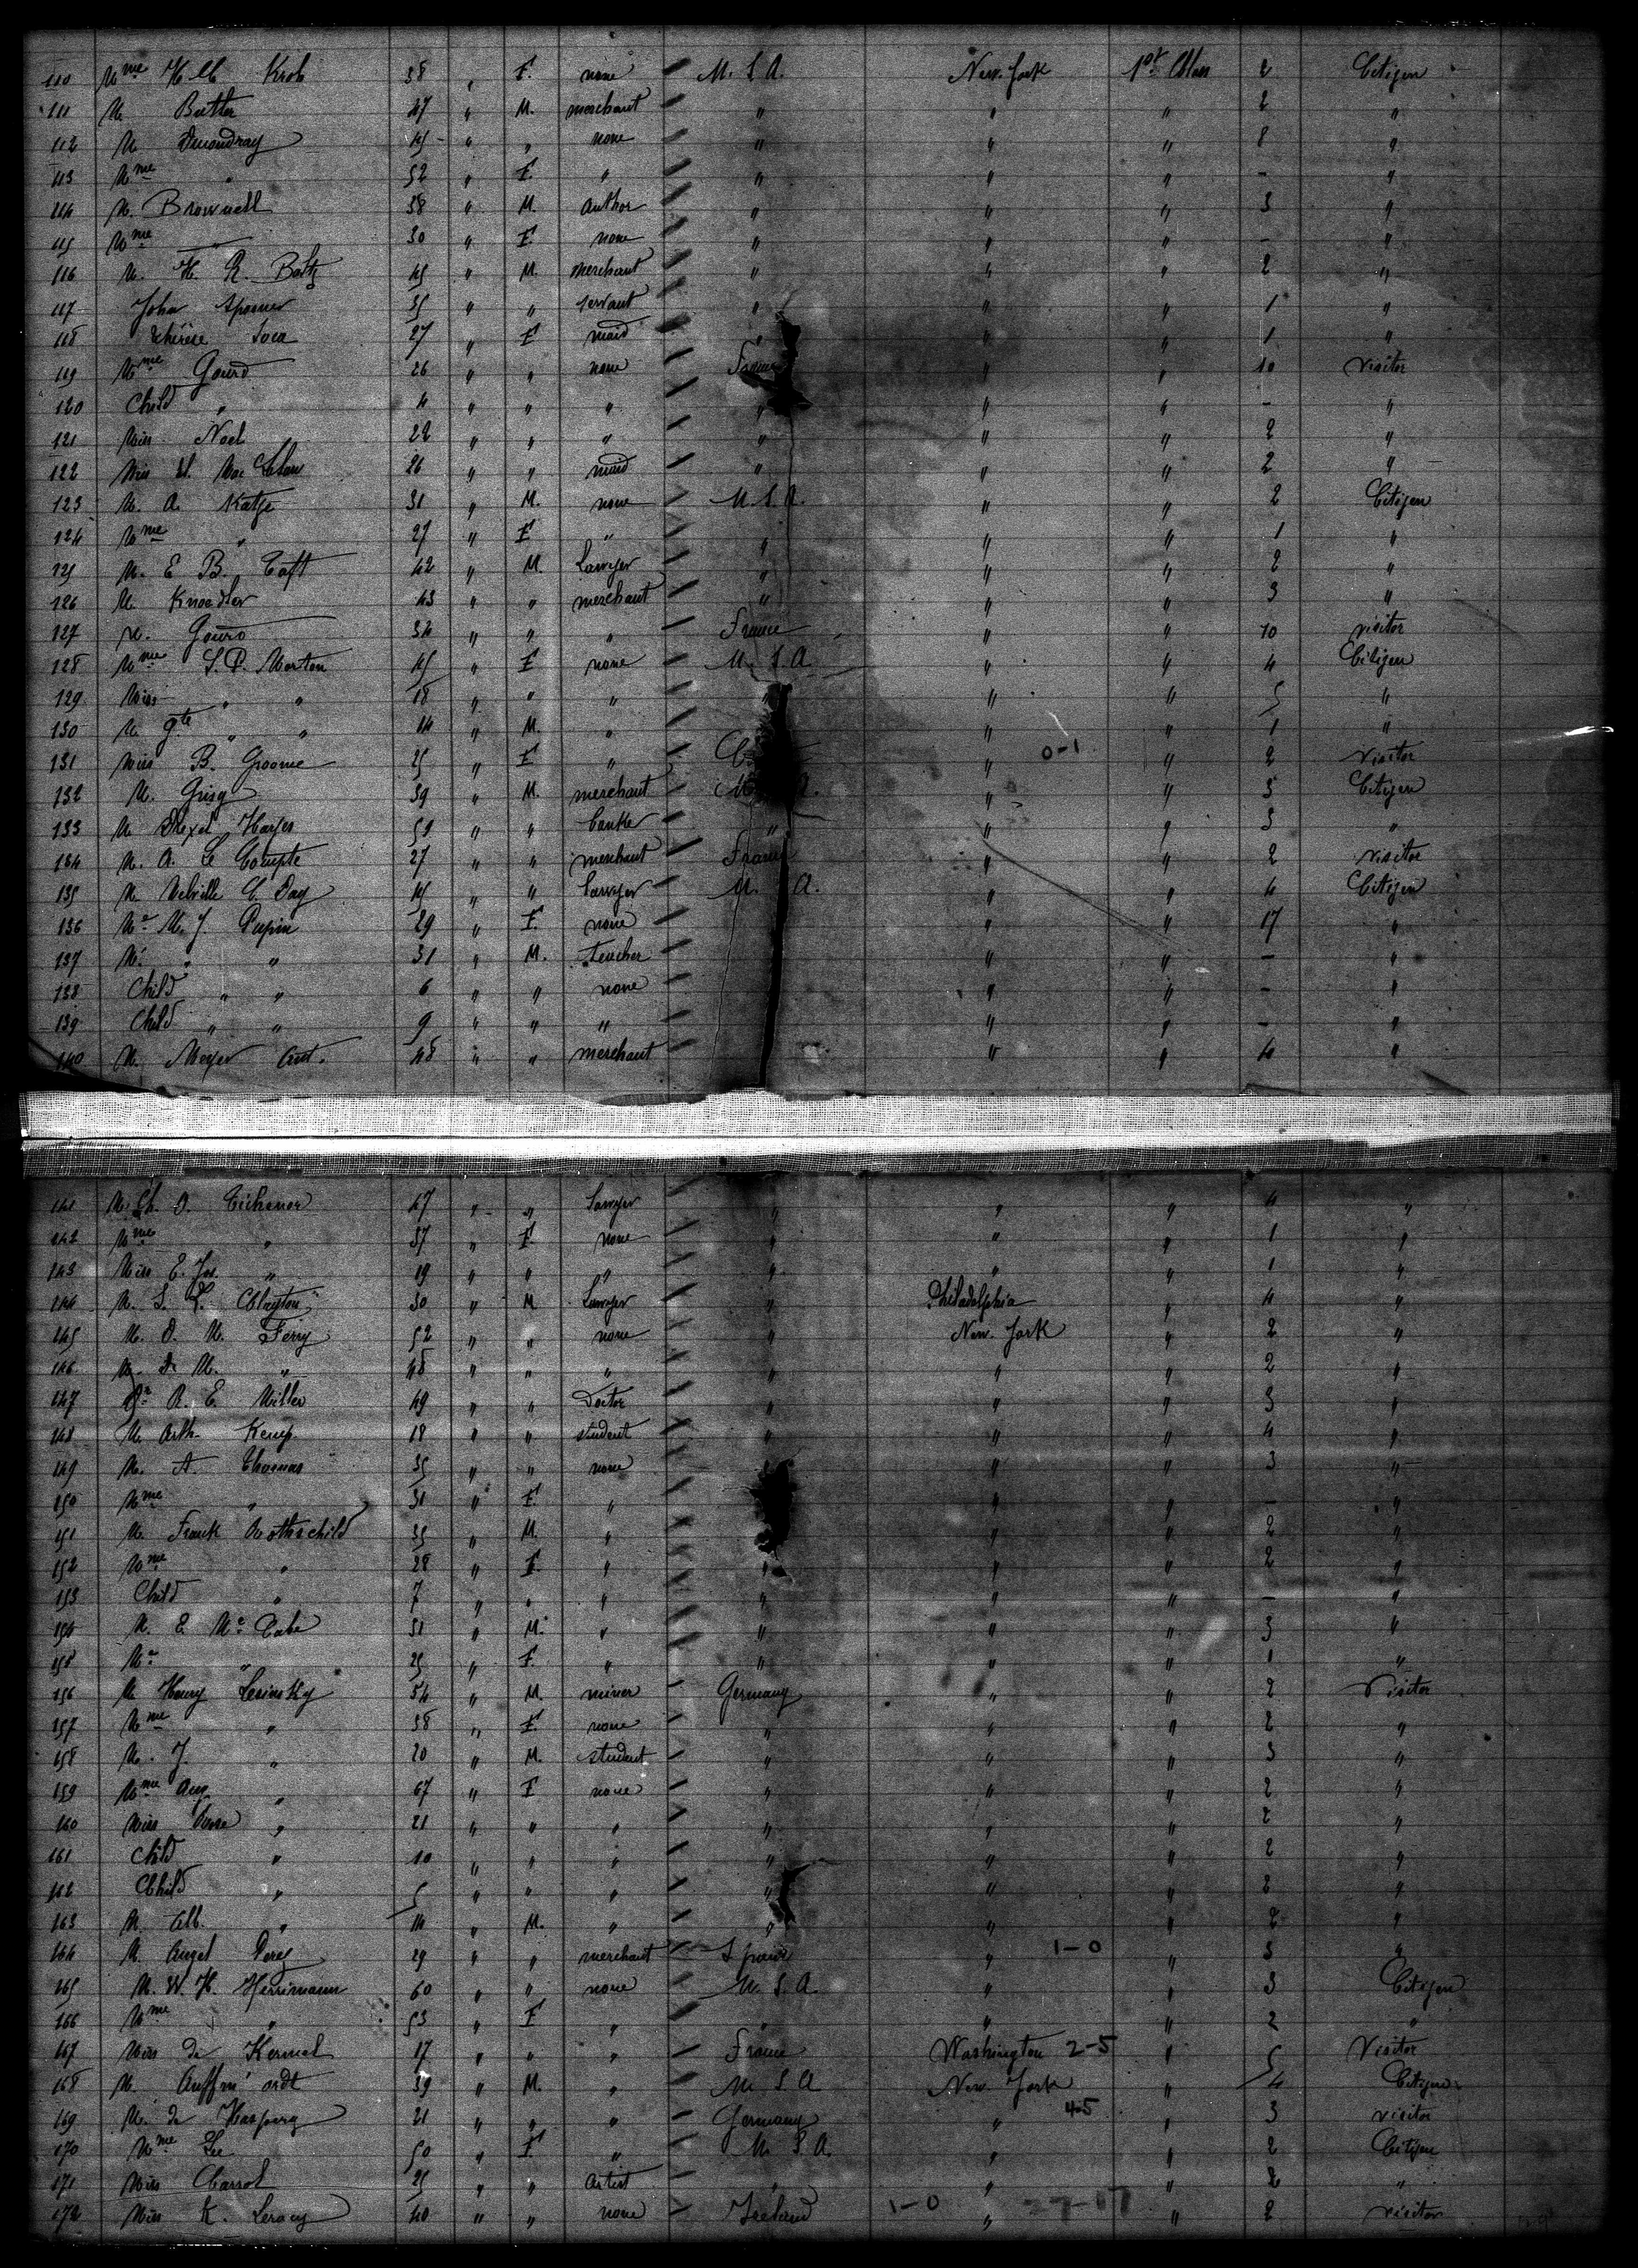 110 Mme H M Krob 38 " F. none U. S. A. New-York 1st Class 2 Citizen
111 M. Butler 47 " M. merchant " " " 2 "
112 M. 45 " " none " " " 8 "
113 Mme " 52 " F. " " " " - "
114 M. Brownell 38 " M. Author " " " 3 "
115 Mme " 30 " F. none " " " - "
116 M. H. R. Baltz 45 " M. merchant " " " 2 "
117 John Spooner 35 " " servant " " " 1 "
118 Thérèse 27 " F maid " " " 1 "
119 Mme Gourd 26 " " none France " " 10 visitor
120 Child " 4 " " " " " " - "
121 Miss Noel 22 " " " " " " 2 "
122 Miss 26 " " maid " " " 2 "
123 M. A. Katze 31 " M. none U. S. A. " " 2 Citizen
124 Mme " 27 " F " " " " 1 "
125 M. E B. Taft 42 " M. Lawyer " " " 2 "
126 M. Knoedler 43 " " merchant " " " 3 "
127 M. Gourd 34 " " " France " " 10 visitor
128 Mme L. P. Morton 45 " F none U. S. A " " 4 Citizen
129 Miss " " 18 " " " " " " 5 "
130 M. " " 14 " M. " " " 1 "
131 Miss B. Groome 25 " F " " 0-1 " 2 visitor
132 M. 39 " M. merchant U. A. " " 3 Citizen
133 M Hayes " " banker " " " 3 "
134 M. A. Le Compte 27 " " merchant France " " 2 visitor
135 M. Melville C. Day 45 " " Lawyer U. A. " " 4 Citizen
136 Mr M. J. Pupin 29 " F. none " " 17 "
137 M. " " 31 " M. teacher " " - "
138 Child " " 6 " " none " " - "
139 Child " " 9 " " " " " - "
140 M. Meyer Ant. 48 " " merchant " " 4 "
141 M. 47 " " Lawyer " " " 4 "
142 Mme " 37 " F. none " " " 1 "
143 Miss E. " 19 " " " " " " 1 "
144 M. L. L. Clayton 30 " M Lawyer " Philadelphia " 4 "
145 M. D. M. Ferry 52 " " none " New-York " 2 "
146 M. D. M. " 48 " " " " " " 2 "
147 Dr R. E. Miller 49 " " Doctor " " " 3 "
148 M. Arth. Kemp 18 " " student " " " 4 "
149 M. A. Thomas 35 " " none " " 3 "
150 Mme " 31 " F. " " " - "
151 M. Frank Rothschild 35 " M. " " " 2 "
152 Mme " 28 " F. " " " " 2 "
153 Child " 7 " " " " " " - "
154 M. E. Mc Cabe 31 " M. " " " " 3 "
155 Mr " 25 " F. " " " " 1 "
156 M Henry Lesinsky 54 " M. miner Germany " " 2 Visitor
157 Mme " 38 " F. none " " " 2 "
158 M. J. " 20 " M. student " " " 3 "
159 Mme Aug. " 67 " F none " " " 2 "
160 Miss " 21 " " " " " " 2 "
161 Child " 10 " " " " " " 2 "
162 Child " 5 " " " " " " 2 "
163 M. Alb. " 14 " M. " " " " 2 "
164 M. Angel Perez 29 " " merchant Spain " 1-0 " 3 "
165 M. W. H. Herrimann 60 " " none U. S. A. " " 3 Citizen
166 Mme " 53 " F " " " " 2 "
167 Miss de Kermel 17 " " " France Washington 2-5 " 5 Visitor
168 M. Auffm'ordt 39 " M. " U. S. A New York " 4 Citizen
169 M. de 21 " " " Germany " 4-5 " 3 visitor
170 Mme Lee 50 " F. " U. S. A. " " 2 Citizen
171 Miss Carrol 25 " " artist " " " 2 "
172 Miss K. 40 " " none Ireland 1-0 " " 2 visitor